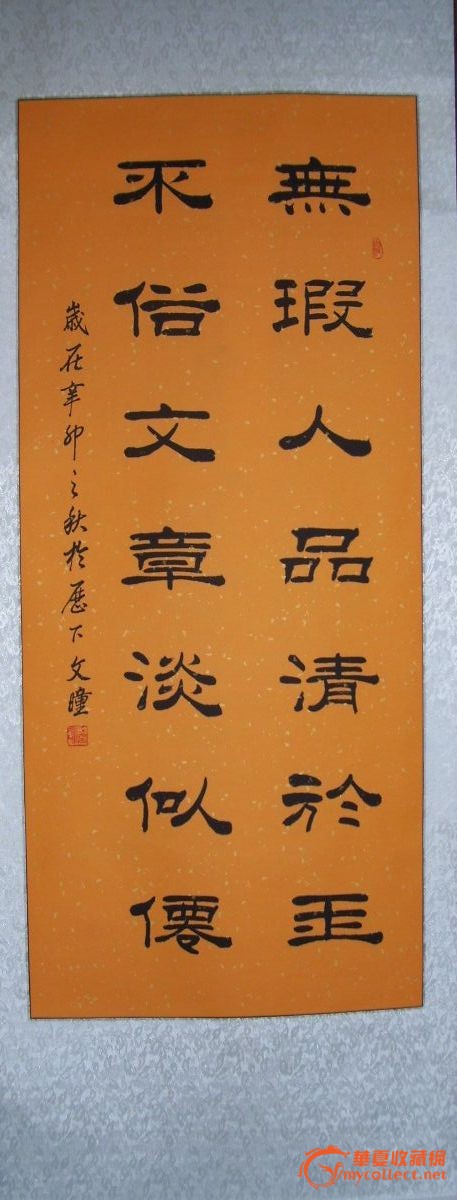 無瑕人品清於玉
不俗文章淡似僊
歲在辛卯之秋於歷下文瞳
華夏收藏網
mycollect.net